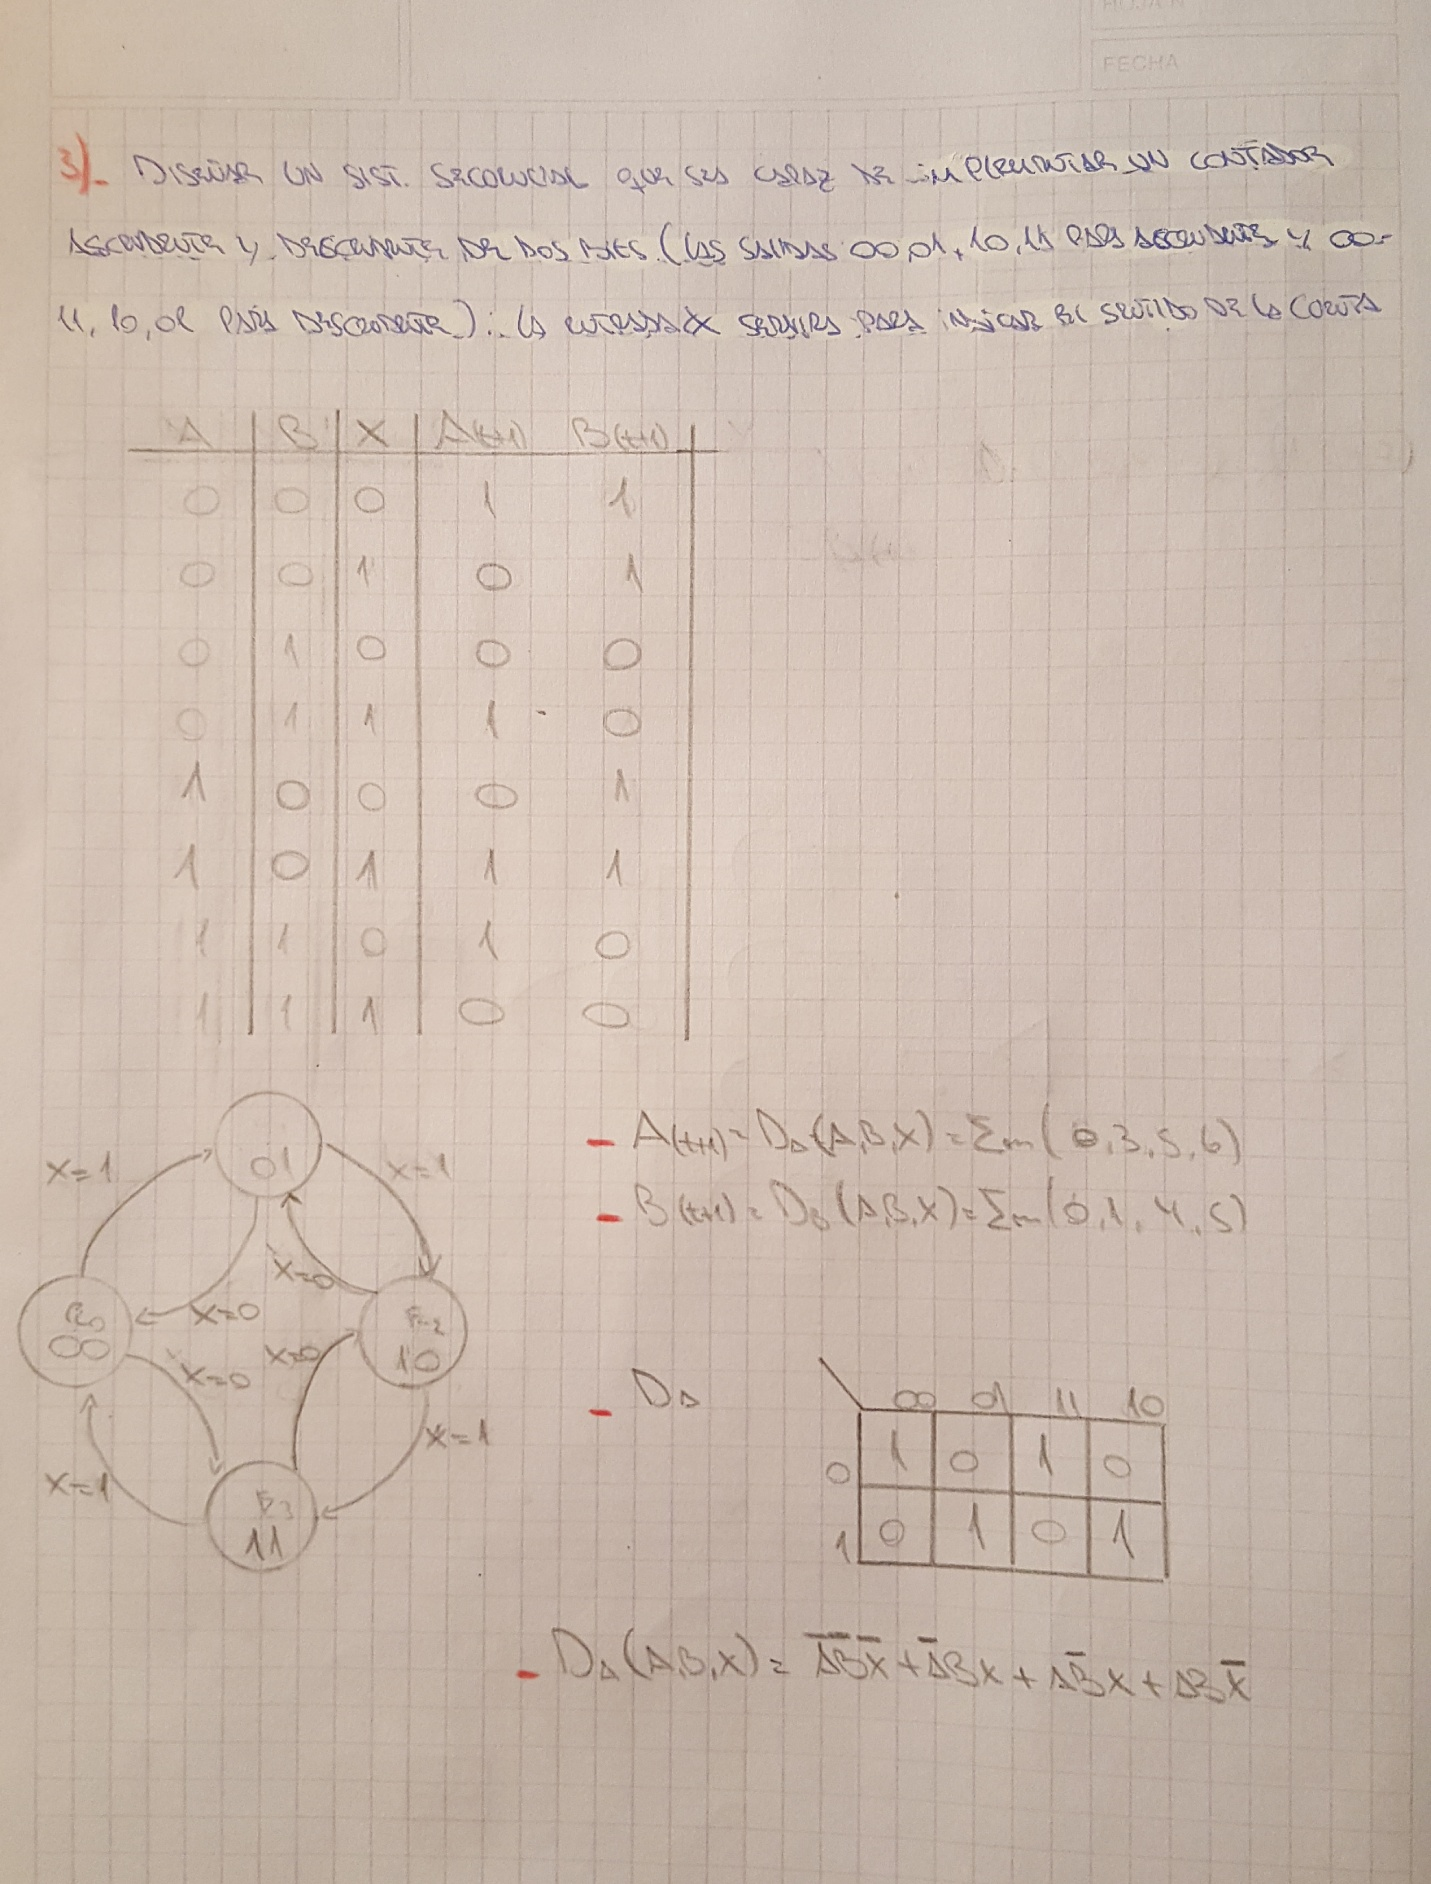 HOJA Nº
FECHA
3).- DISEÑAR UN SIST. SECUENCIAL QUE SEA CAPAZ DE IMPLEMENTAR UN CONTADOR
ASCENDENTE Y DESCENDENTE DE DOS BITS (LAS SALIDAS 00,01,10,11 PARA ASCENDENTE Y 00-
11,10,01 PARA DESCENDENTE). LA ENTRADA X SERVIRA PARA INDICAR EL SENTIDO DE LA CUENTA
A B X A(t+1) B(t+1)
0 0 0 1 1
0 0 1 0 1
0 1 0 0 0
0 1 1 1 0
1 0 0 0 1
1 0 1 1 1
1 1 0 1 0
1 1 1 0 0
- A(t+1) = DA(A,B,X) = Σm(0,3,5,6)
- B(t+1) = DB(A,B,X) = Σm(0,1,4,5)
X=1
01
X=1
X=0
X=0
00
10
X=0
X=0
X=1
X=1
11
- DA
00 01 11 10
0 1 0 1 0
1 0 1 0 1
- DA(A,B,X) = A̅B̅X̅ + A̅BX + AB̅X + ABX̅